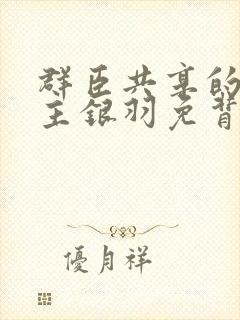 群臣共享的
主银羽免背
優月祥